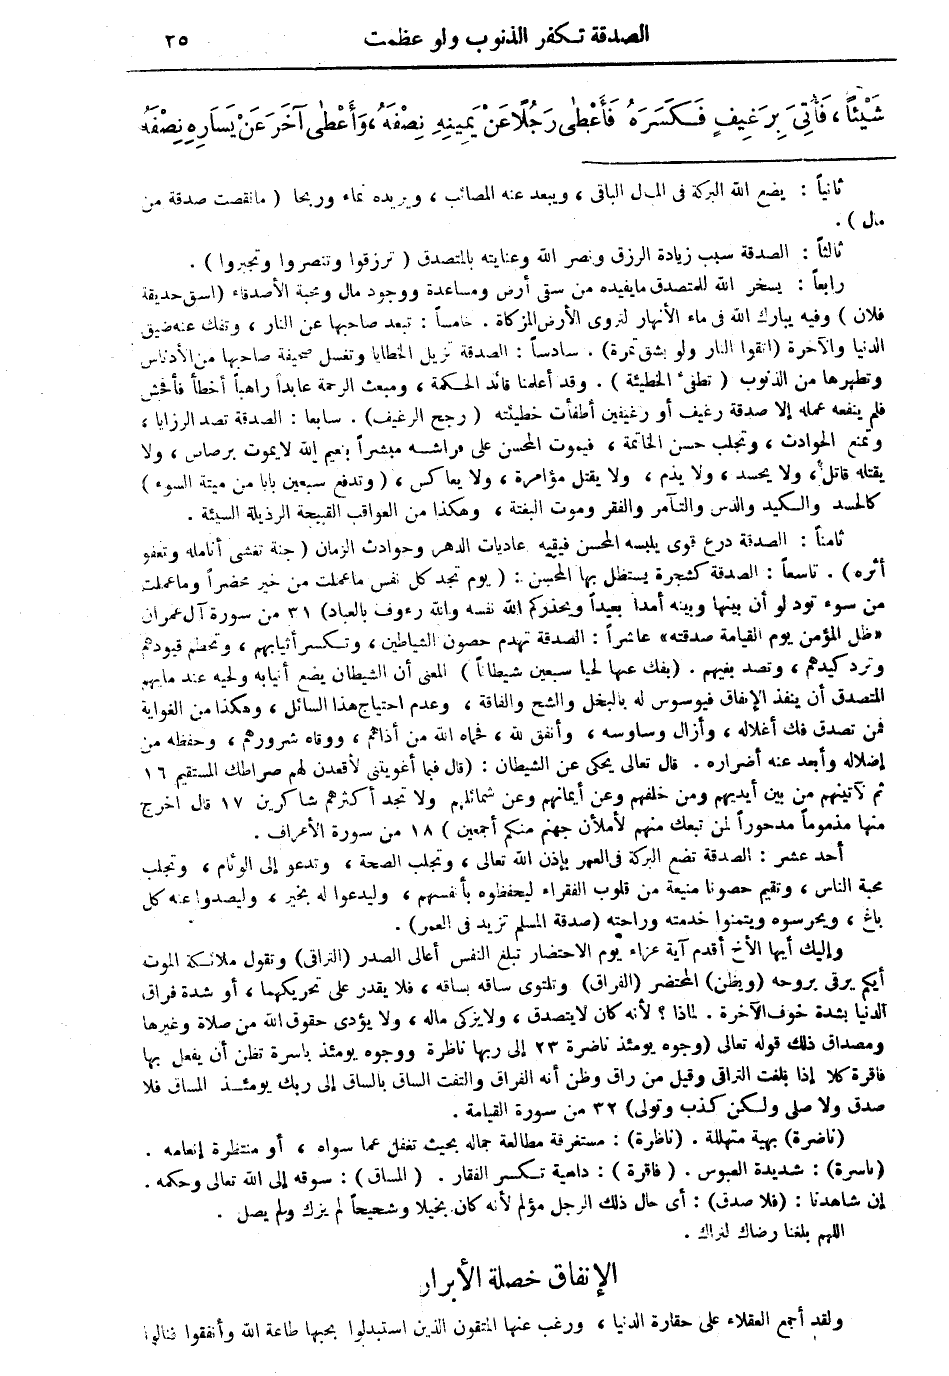 الصدقة تكفر الذنوب ولو عظمت ٢٥
شَيْئاً ، فَأُتِىَ بِرَغِيفٍ فَكَسَرَهُ فَأَعْطَى رَجُلًا عَنْ يَمِينِهِ نِصْفَهُ ، وَأَعْطَى آخَرَ عَنْ يَسَارِهِ نِصْفَهُ
ثانياً : يضع الله البركة فى المال الباقى ، ويبعد عنه المصائب ، ويزيده نماء وربحا ( مانقصت صدقة من
مال ) .
ثالثاً : الصدقة سبب زيادة الرزق ونصر الله وعنايته بالمتصدق ( ترزقوا وتنصروا وتجبروا ) .
رابعاً : يسخر الله للمتصدق مايفيده من سقى أرض ومساعدة ووجود مال ومحبة الأصدقاء (اسق حديقة
فلان ) وفيه يبارك الله فى ماء الأنهار لتروى الأرض المزكاة . خامساً : تبعد صاحبها عن النار ، وتفك عنه ضيق
الدنيا والآخرة (اتقوا النار ولو بشق تمرة) . سادساً : الصدقة تزيل الخطايا وتغسل صحيفة صاحبها من الأدناس
وتطهرها من الذنوب ( تطفىء الخطيئة ) . وقد أعلمنا قائد الحكمة ، ومبعث الرحمة عابداً راهباً أخطأ فأفحش
فلم ينفعه عمله إلا صدقة رغيف أو رغيفين أطفأت خطيئته ( رجح الرغيف) . سابعا : الصدقة تصد الرزايا ،
وتمنع الحوادث ، وتجلب حسن الخاتمة ، فيموت المحسن على فراشه مبشراً بنعيم الله لايموت برصاص ، ولا
يقتله قاتل ، ولا يحسد ، ولا يذم ، ولا يقتل مؤامرة ، ولا يعاكس ، ( وتدفع سبعين بابا من ميتة السوء )
كالحسد والكيد والدس والتآمر والفقر وموت البغتة ، وهكذا من العواقب القبيحة الرذيلة السيئة .
ثامناً : الصدقة درع قوى يلبسه المحسن فيقيه عاديات الدهر وحوادث الزمان (جنة تغشى أنامله وتعفو
أثره) . تاسعاً : الصدقة كشجرة يستظل بها المحسن : ( يوم تجد كل نفس ماعملت من خير محضراً وماعملت
من سوء تود لو أن بينها وبينه أمدا بعيداً ويحذركم الله نفسه والله رءوف بالعباد) ٣١ من سورة آل عمران
«ظل المؤمن يوم القيامة صدقته» عاشراً : الصدقة تهدم حصون الشياطين ، وتكسر أنيابهم ، وتحطم قيودهم
وترد كيدهم ، وتصد بغيهم . (يفك عنها لحيا سبعين شيطاناً ) المعنى أن الشيطان يضع أنيابه ولحيه عند مايهم
المتصدق أن ينفذ الإنفاق فيوسوس له بالبخل والشح والفاقة ، وعدم احتياج هذا السائل ، وهكذا من الغواية
فمن تصدق فك أغلاله ، وأزال وساوسه ، وأنفق لله ، فحماه الله من أذاهم ، ووقاه شرورهم ، وحفظه من
إضلاله وأبعد عنه أضراره . قال تعالى يحكى عن الشيطان : (قال فبما أغويتنى لأقعدن لهم صراطك المستقيم ١٦
ثم لآتينهم من بين أيديهم ومن خلفهم وعن أيمانهم وعن شمائلهم ولا تجد أكثرهم شاكرين ١٧ قال اخرج
منها مذموماً مدحوراً لمن تبعك منهم لأملأن جهنم منكم أجمعين ) ١٨ من سورة الأعراف .
أحد عشر : الصدقة تضع البركة فى العمر بإذن الله تعالى ، وتجلب الصحة ، وتدعو إلى الوئام ، وتجلب
محبة الناس ، وتقيم حصونا منيعة من قلوب الفقراء ليحفظوه بأنفسهم ، وليدعوا له بخير ، وليصدوا عنه كل
باغ ، ويحرسوه ويتمنوا خدمته وراحته (صدقة المسلم تزيد فى العمر) .
وإليك أيها الأخ أقدم آية عزاء يوم الاحتضار تبلغ النفس أعالى الصدر (التراقى) وتقول ملائكة الموت
أيكم يرقى بروحه (ويظن) المحتضر (الفراق) وتلتوى ساقه بساقه ، فلا يقدر على تحريكهما ، أو شدة فراق
الدنيا بشدة خوف الآخرة . لماذا ؟ لأنه كان لايتصدق ، ولايزكى ماله ، ولا يؤدى حقوق الله من صلاة وغيرها
ومصداق ذلك قوله تعالى (وجوه يومئذ ناضرة ٢٣ إلى ربها ناظرة ووجوه يومئذ باسرة تظن أن يفعل بها
فاقرة كلا إذا بلغت التراقى وقيل من راق وظن أنه الفراق والتفت الساق بالساق إلى ربك يومئذ المساق فلا
صدق ولا صلى ولكن كذب وتولى) ٣٢ من سورة القيامة .
(ناضرة) بهية متهللة . (ناظرة) : مستغرفة مطالعة جماله بحيث تغفل عما سواه ، أو منتظرة إنعامه .
(باسرة) : شديدة العبوس . ( فاقرة ) : داهية تكسر الفقار . ( المساق ) : سوقه إلى الله تعالى وحكمه .
إن شاهدنا : (فلا صدق) : أى حال ذلك الرجل مؤلم لأنه كان بخيلا وشحيحاً لم يزك ولم يصل .
اللهم بلغنا رضاك لنراك .
الإنفاق خصلة الأبرار
ولقد أجمع العقلاء على حقارة الدنيا ، ورغب عنها المتقون الذين استبدلوا بحبها طاعة الله وأنفقوا فنالوا